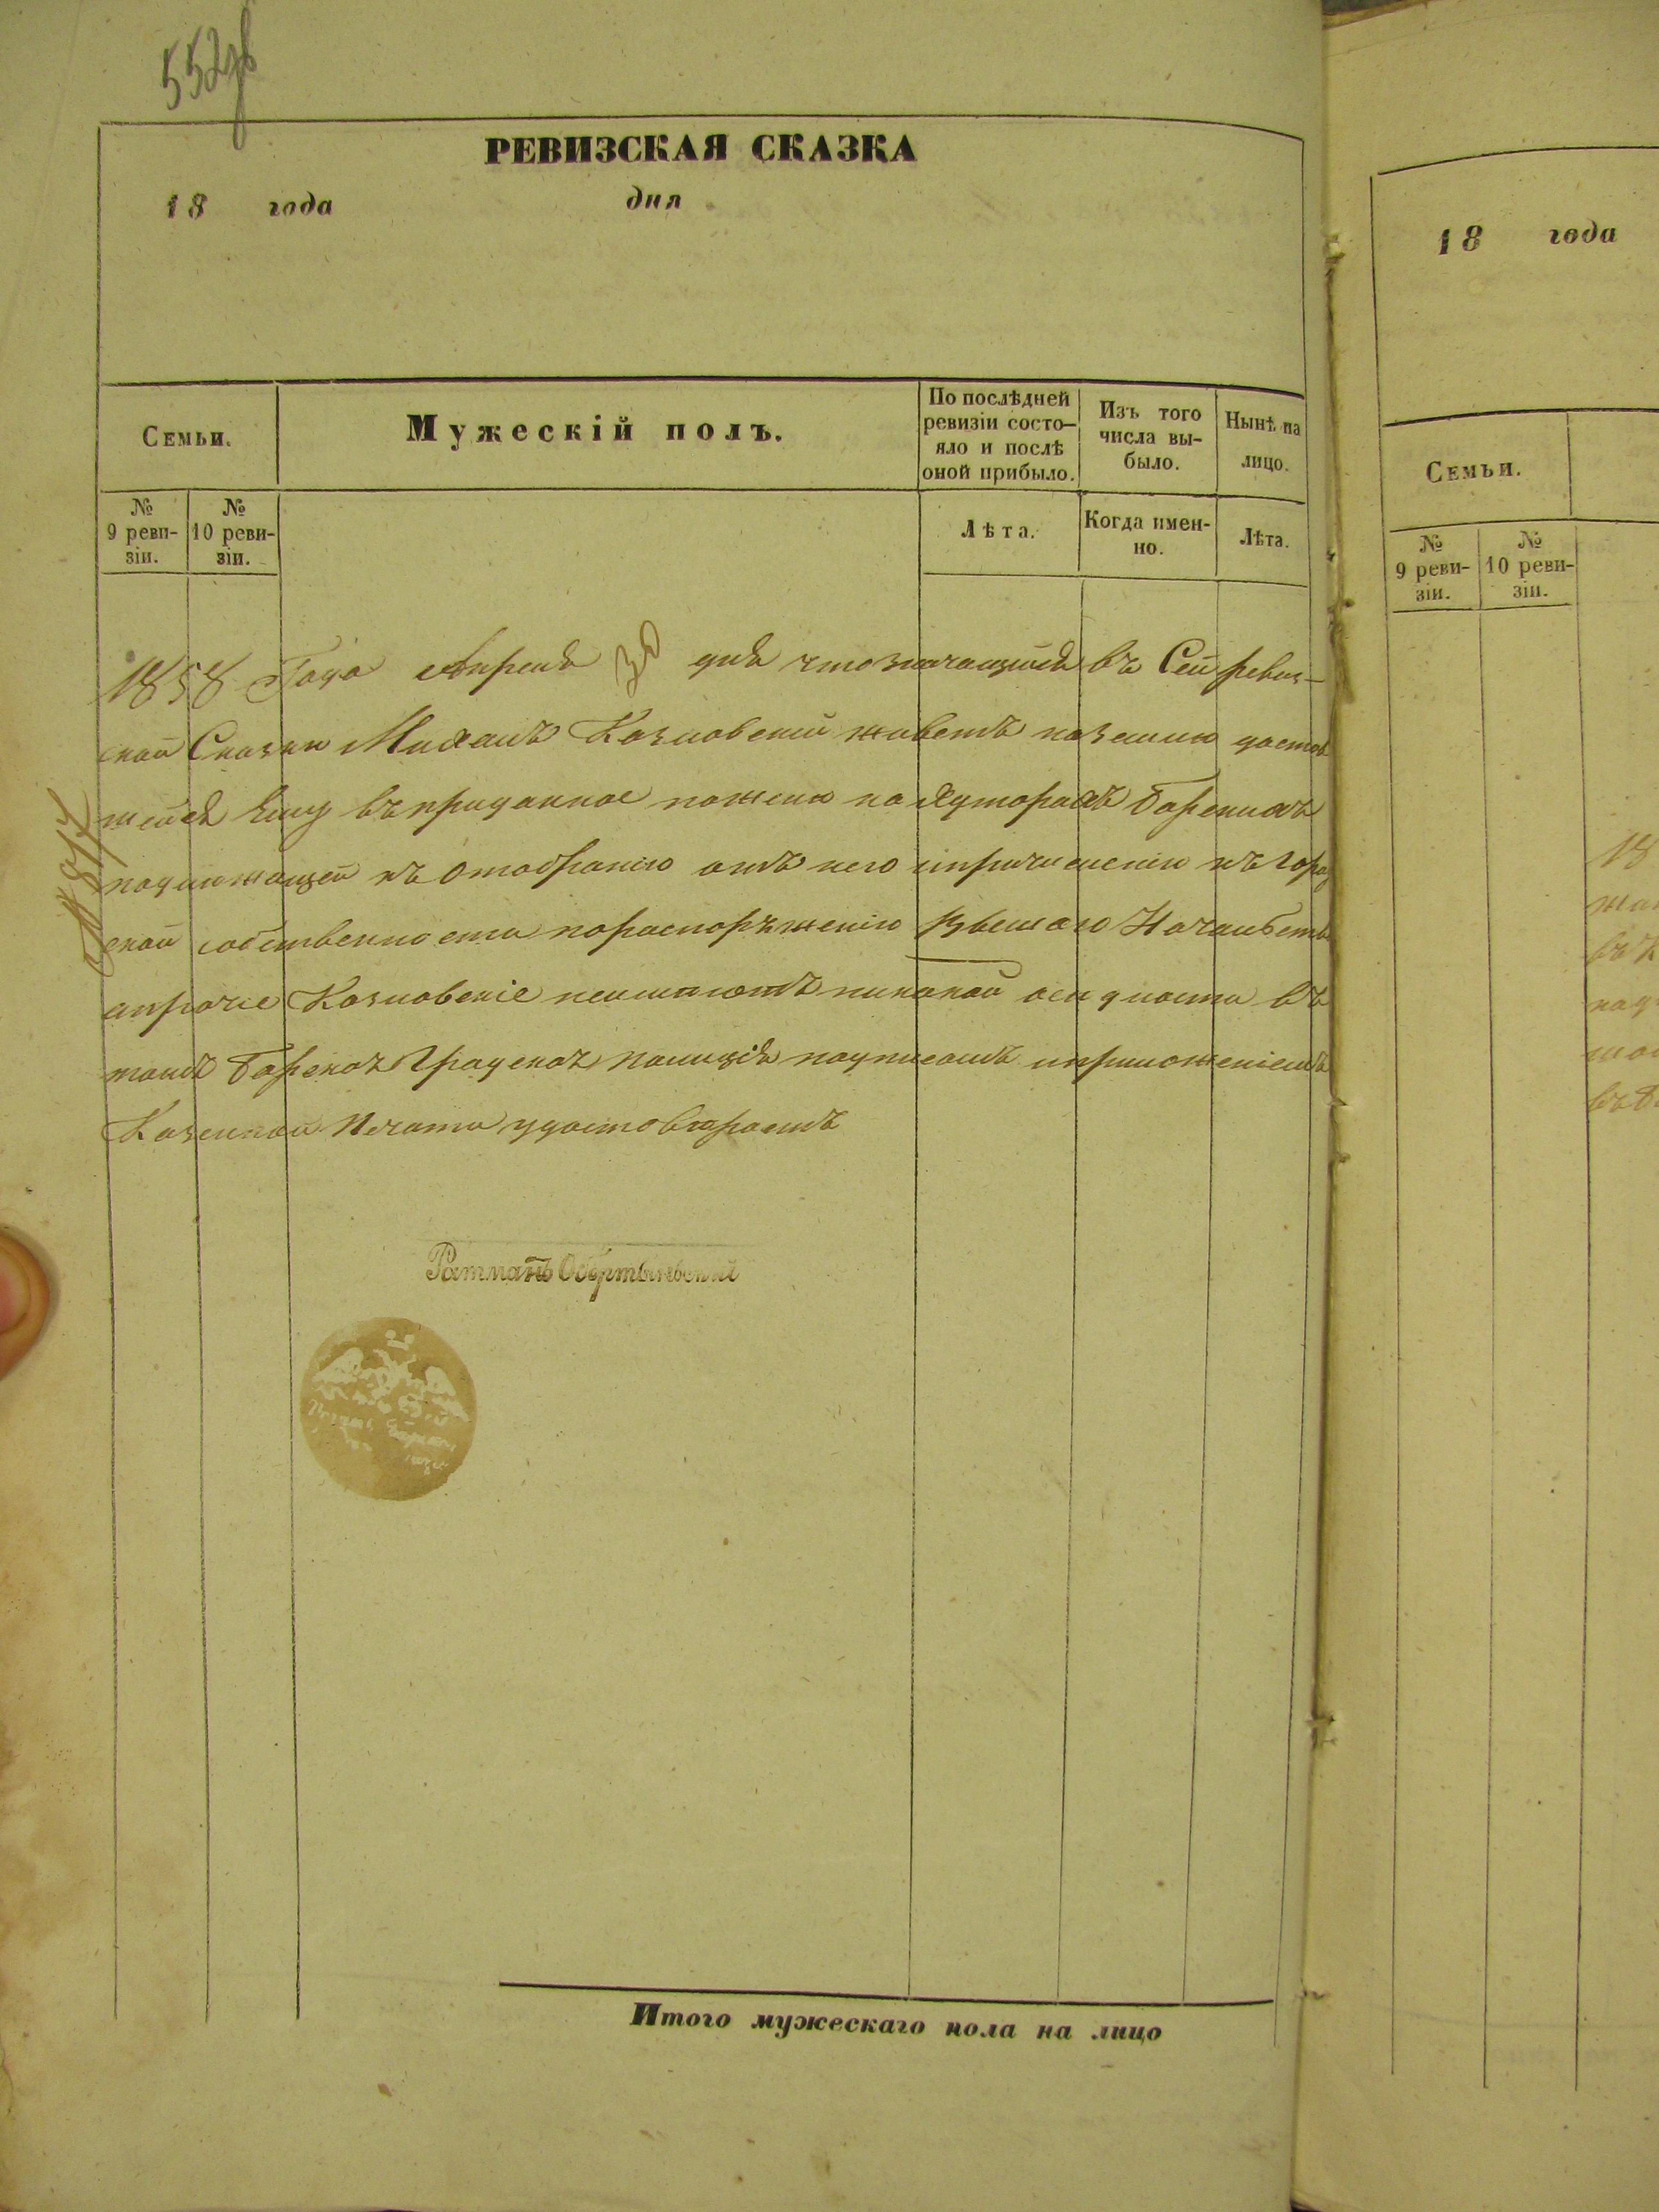 552 об
РЕВИЗСКАЯ СКАЗКА
18 года дня
Семьи.
Мужескій полъ.
По послѣдней ревизіи состо-
яло и послѣ оной прибыло.
Изъ того числа вы-
было.
Нынѣ на лицо.
№ 9 реви-
зіи.
№ 10 реви-
зіи.
Лѣта.
Когда имен-
но.
Лѣта.
1858 Года Апреля 30 дня что значащійся въ Сей ревиз-
ской Сказки Михаилъ Козловскій живетъ на земли достав
шейся Ему въ приданное по жени на Хуторахъ Барскихъ
подлежащей къ отобранію отъ него и причисленію къ Город
ской собственности по распоряженію Высшаго Начальства
а прочіе Козловскіе неимѣютъ никакой оседлости въ
томъ Барская Градская полиція подписомъ и приложеніемъ
Казенной Печати удостовѣряетъ
№ 817
Ратманъ
Итого мужескаго пола на лицо
18 года
Семьи.
№ 9 реви-
зіи.
№ 10 реви-
зіи.
18